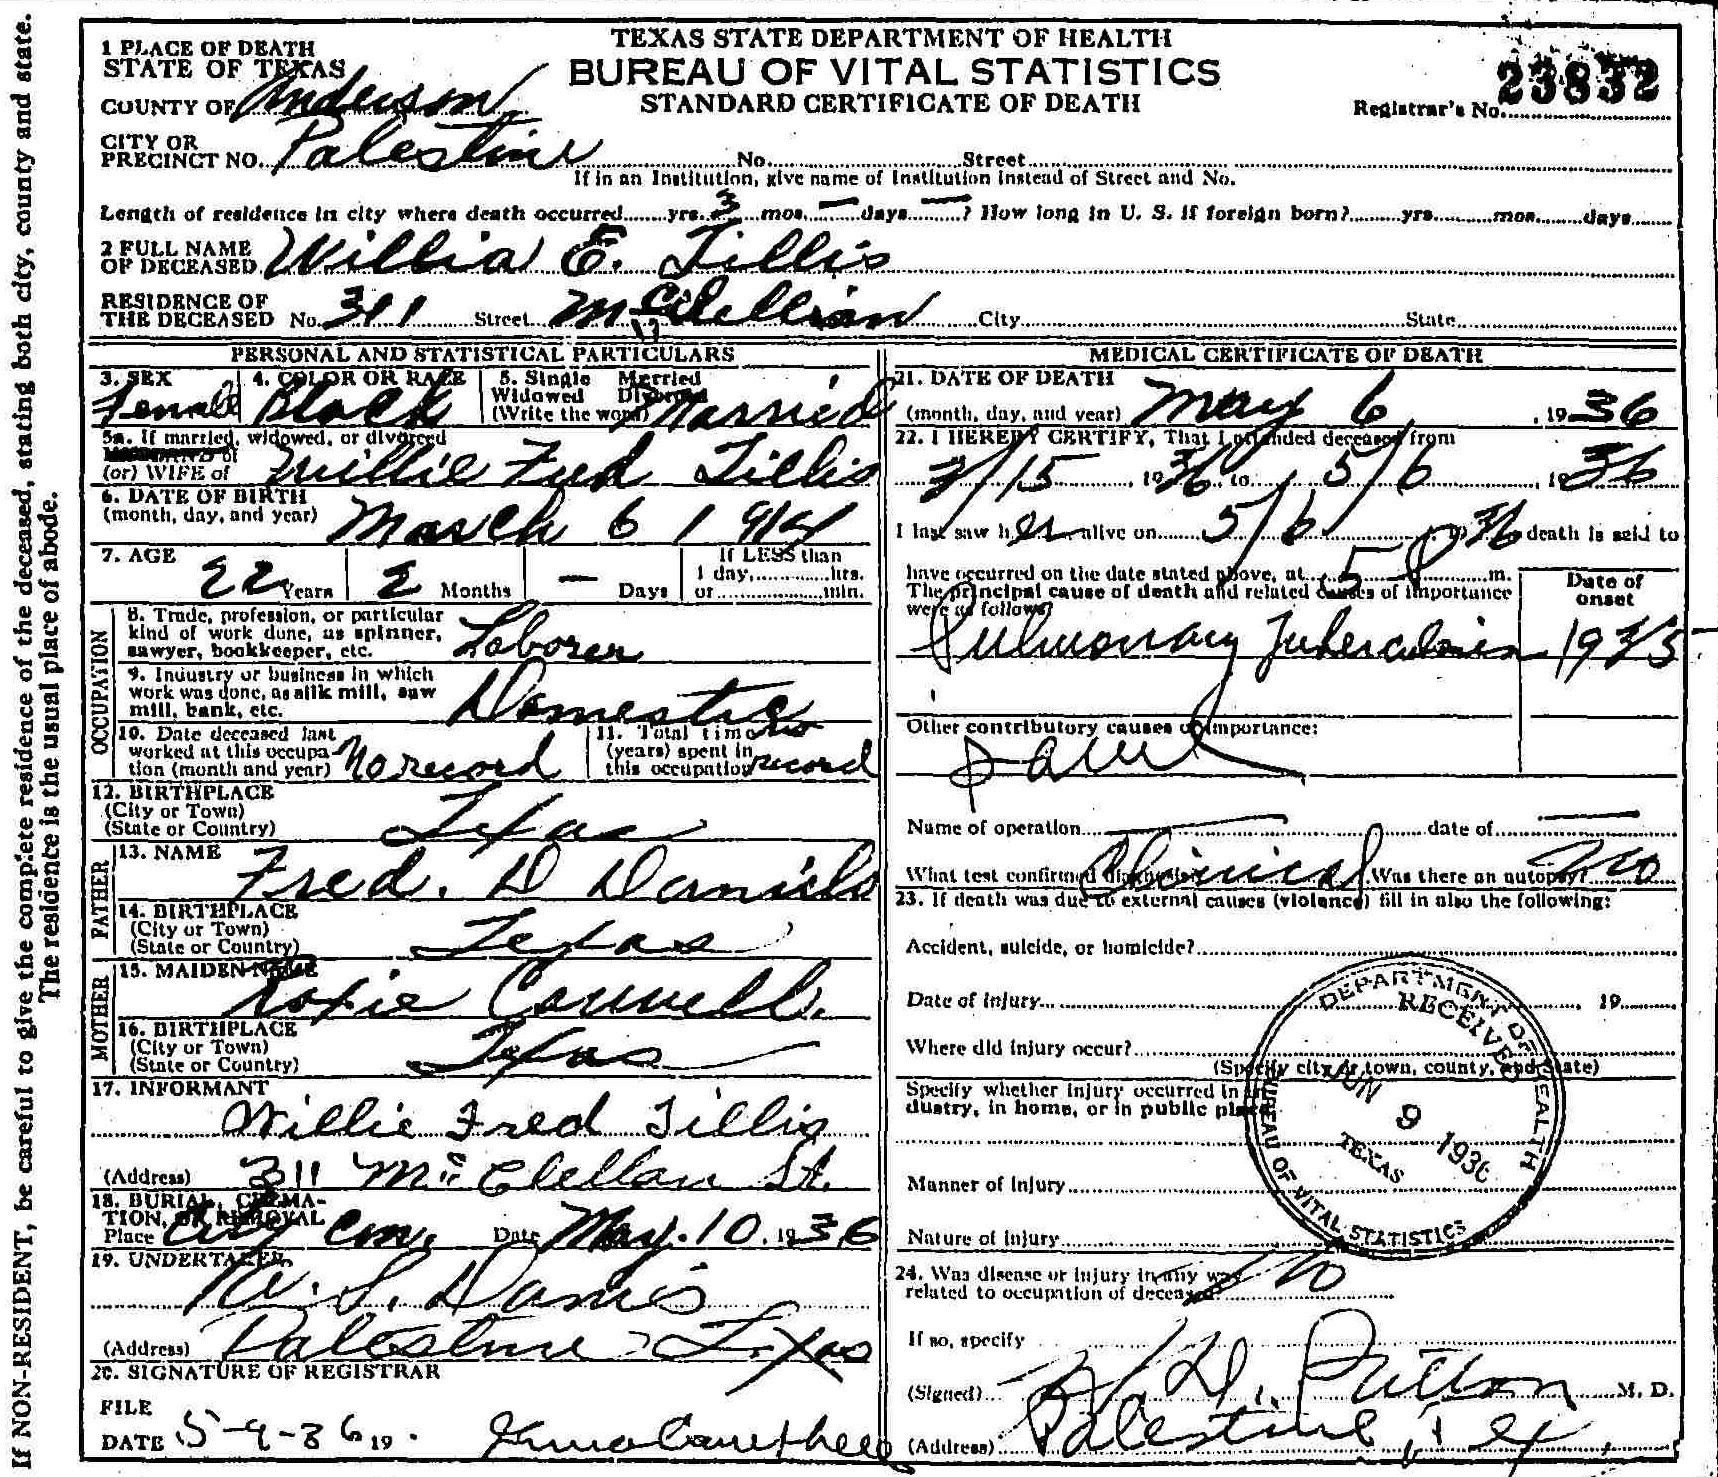 If NON-RESIDENT, be careful to give the complete residence of the deceased, stating both city, county and state.
The residence is the usual place of abode.
TEXAS STATE DEPARTMENT OF HEALTH
BUREAU OF VITAL STATISTICS
STANDARD CERTIFICATE OF DEATH
23832
Registrar's No.
1 PLACE OF DEATH
STATE OF TEXAS
COUNTY OF Anderson
CITY OR
PRECINCT NO. Palestine No. Street
If in an Institution, give name of Institution instead of Street and No.
Length of residence in city where death occurred yrs. 3 mos — days —? How long in U. S. if foreign born? yrs. mos. days
2 FULL NAME
OF DECEASED Willia E. Tillis
RESIDENCE OF
THE DECEASED No. 311 Street McClellian City State
PERSONAL AND STATISTICAL PARTICULARS
3. SEX 4. COLOR OR RACE 5. Single Married
Widowed Divorced
(Write the word)
Female Black Married
5a. If married, widowed, or divorced
(or) WIFE of Willie Fred Tillis
6. DATE OF BIRTH
(month, day, and year) March 6 1914
7. AGE If LESS than
22 Years 2 Months — Days 1 day, hrs.
or min.
OCCUPATION
8. Trade, profession, or particular
kind of work done, as spinner,
sawyer, bookkeeper, etc. Laborer
9. Industry or business in which
work was done, as silk mill, saw
mill, bank, etc. Domestic
10. Date deceased last
worked at this occupa-
tion (month and year) No record
11. Total time
(years) spent in
this occupation no record
12. BIRTHPLACE
(City or Town)
(State or Country) Texas
FATHER
13. NAME Fred. D Daniels
14. BIRTHPLACE
(City or Town)
(State or Country) Texas
MOTHER
15. MAIDEN NAME Roxie
16. BIRTHPLACE
(City or Town)
(State or Country) Texas
17. INFORMANT
Willie Fred Tillis
(Address) 311 McClellan St.
18. BURIAL, CREMA-
TION, OR REMOVAL
Place City Cem. Date May. 10. 1936
19. UNDERTAKER
W. S. Davis
(Address) Palestine Texas
20. SIGNATURE OF REGISTRAR
FILE
DATE 5-9-36 19
MEDICAL CERTIFICATE OF DEATH
21. DATE OF DEATH
(month, day, and year) May 6, 1936
22. I HEREBY CERTIFY, That I attended deceased from
15, 1936 to 5/6, 1936
I last saw her alive on 5/6, 1936 death is said to
have occurred on the date stated above, at 5 P m.
The principal cause of death and related causes of importance
were as follows:
Date of
onset
Pulmonary Tuberculosis 1935
Other contributory causes of importance:
Same
Name of operation — date of —
What test confirmed diagnosis Clinical Was there an autopsy? No
23. If death was due to external causes (violence) fill in also the following:
Accident, suicide, or homicide?
Date of injury , 19
Where did injury occur?
(Specify city or town, county, and State)
Specify whether injury occurred in in-
dustry, in home, or in public place
Manner of injury
Nature of injury
DEPARTMENT OF HEALTH
RECEIVED
JUN 9 1936
TEXAS
BUREAU OF VITAL STATISTICS
24. Was disease or injury in any way
related to occupation of deceased? No
If so, specify
(Signed) M. D.
(Address) Palestine, Tex.